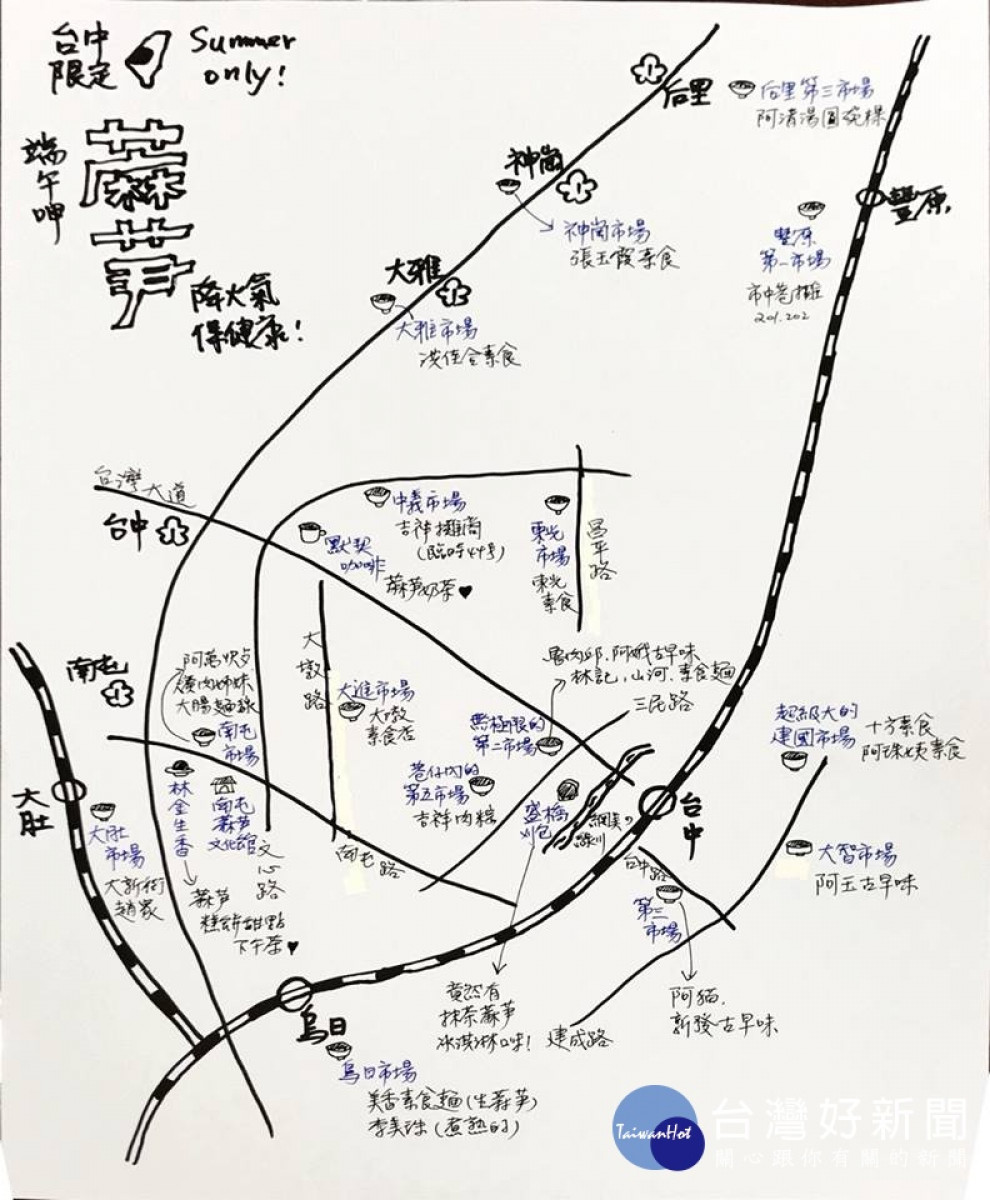 台中
限定
Summer
only!
端午呷
蔴
芛
降火氣
保健康!
后里
后里第三市場
阿清湯圓碗粿
神岡
神岡市場
張玉霞素食
豐原
豐原
第一市場
市中巷攤
201.202
大雅
大雅市場
素食
台灣大道
台中
中義市場
吉祥攤商
(臨時44号)
默契
咖啡
蔴芛奶茶♥
東光
市場
東光
素食
昌平路
大墩路
南屯
大腸麵線
南屯
市場
大進市場
大墩
素食店
魯肉邱、阿娥古早味
林記、山河、素食麵
三民路
無極限的
第二市場
巷仔内的
第五市場
吉祥肉粽
超級大的
建國市場
十方素食
阿珠姨素食
大肚
大肚
市場
大新街
趙家
林金生香
南屯
蔴芛
文化館
文心路
南屯路
蔴芛
糕餅甜點
下午茶♥
盛橋
刈包
網美の
綠川
台中
台中路
第三
市場
大智市場
阿玉古早味
竟然有
抹茶蔴芛
冰淇淋口味!
建成路
阿貓、
新發古早味
烏日
烏日市場
美香素食麵(生蔴芛)
李美珠(煮熟的)
TaiwanHot
台灣好新聞
關心跟你有關的新聞